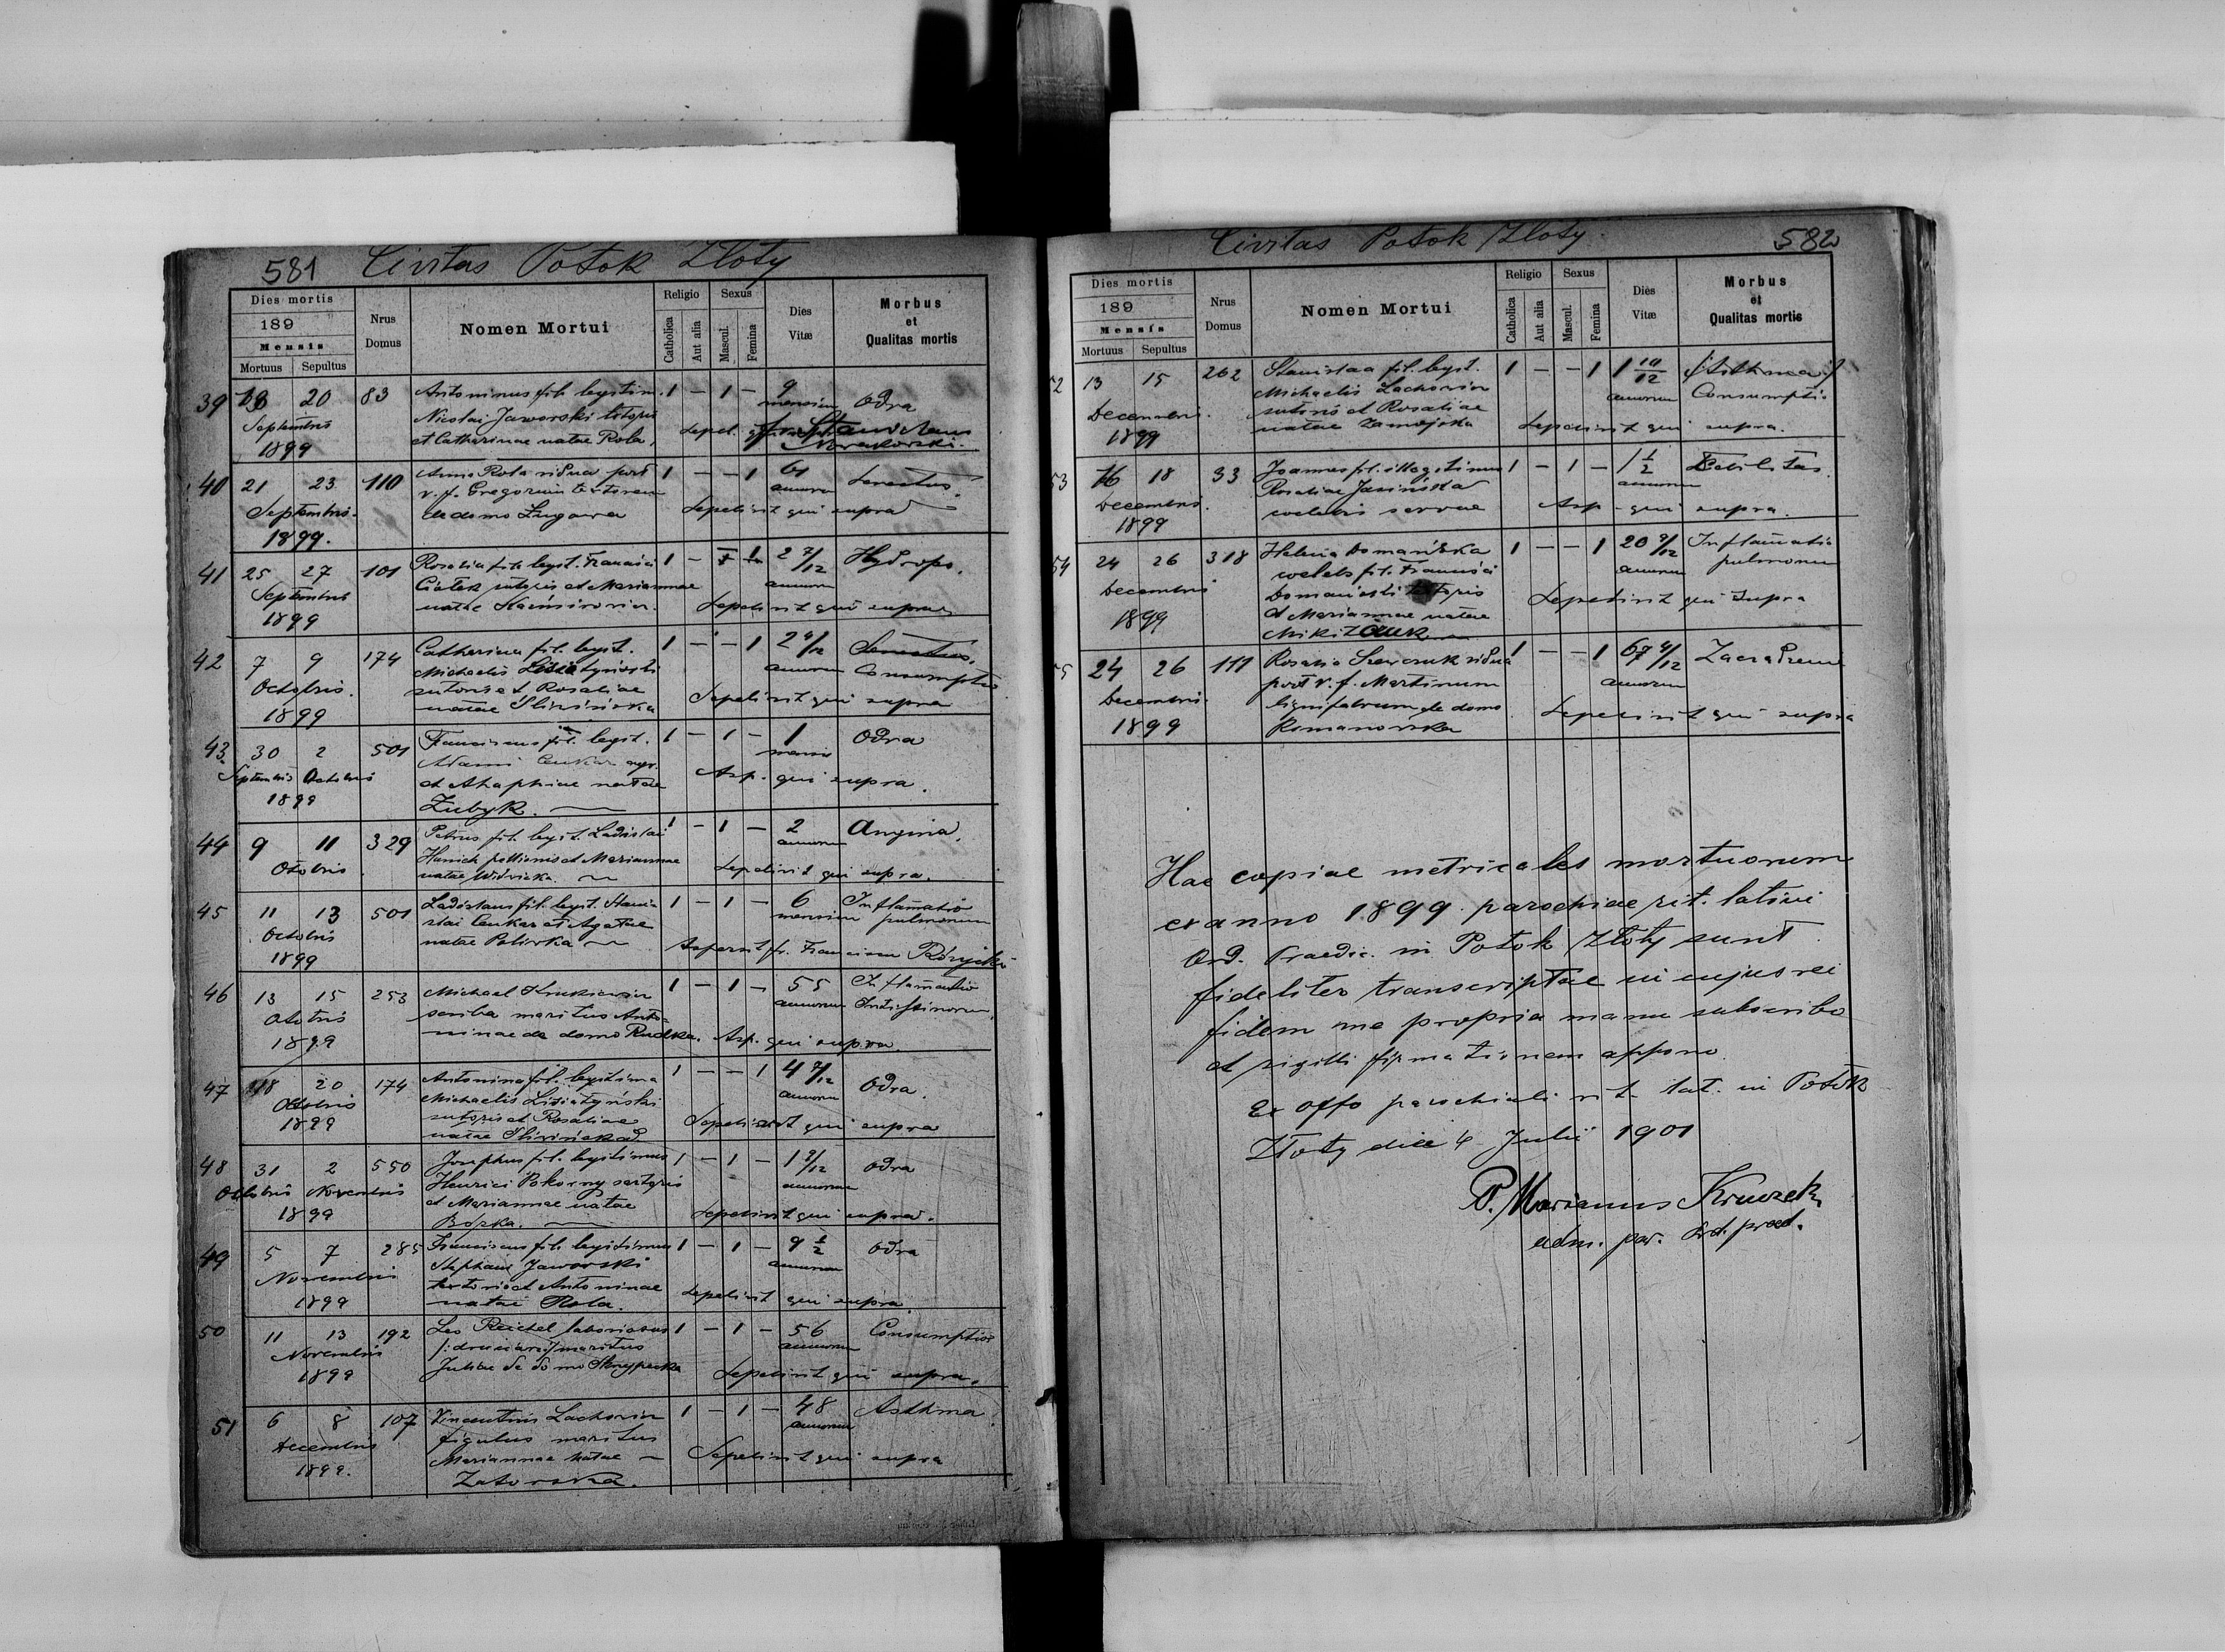 581 Civitas Potok Złoty
Dies mortis
189
Mensis
Mortuus Sepultus
Nrus Domus
Nomen Mortui
Religio
Catholica
Aut alia
Sexus
Mascul.
Femina
Dies Vitæ
Morbus et Qualitas mortis
39 18 20 83 Antoninus fil. legitim. 1 – 1 – 9 mensium Odra
Septembris Nicolai Jaworski
1899 et Catharinae natae Rola,
40 21 23 110 Anna Rola vidua post 1 – – 1 61 annorum Senectus.
Septembris v. f. Gregorium textorem Sepelivit qui supra
1899. de domo Lugowa
41 25 27 101 Rosalia fil. legit. Francisci 1 – 1 2 7/12 annorum Hydrops.
Septembris Ciołek et Mariannae
1899 natae Sepelivit qui supra
42 7 9 174 Catharina fil. legit. 1 – – 1 2 4/12 annorum Consumptio
Octobris. Michaelis Lisiatyński
sutoris et Rosaliae Sepelivit qui supra
1899 natae Śliwińska
43 30 2 501 Franciscus fil. legit. 1 – 1 – 1 mensis Odra
Septembris Octobris Adami Cenkar agr.
1899 et Ahaphiae natae Asp. qui supra.
Zubyk.
44 9 11 329 Petrus fil. legit. Ladislai 1 – 1 – 2 annorum Angina.
Octobris et Mariannae
natae Sepelivit qui supra.
45 11 13 501 Ladislaus fil. legit. Stani- 1 – 1 – 6 mensium Inflamatio pulmonum
Octobris slai Cenkar et Agatae
1899 natae Poliwka Aspersit fr. Franciscus Różycki
46 13 15 253 Michael 1 – 1 – 55 annorum Inflamatio Intestinorum.
Octobris scriba maritus Anto-
1899 ninae de domo Rudka. Asp. qui supra.
47 18 20 174 Antonina fil. legitima 1 – – 1 4 7/12 annorum Odra.
Octobris Michaelis Lisiatyński
1899 sutoris et Rosaliae Sepelivit qui supra
natae Śliwińska
48 31 2 550 Josephus fil. legitimus 1 – 1 – 1 8/12 annorum Odra
Octobris Novembris Henrici Pokorny sartoris
1899 et Mariannae natae
Sepelivit qui supra.
49 5 7 285 Franciscus fil. legitimus 1 – 1 – 9 1/2 annorum Odra
Novembris Stephani Jaworski
textoris et Antoninae
1899 natae Rola. Sepelivit qui supra.
50 11 13 192 Leo Reichel laboriosus 1 – 1 – 56 annorum Consumptio
Novembris maritus
1899 Juliae de domo Sepelivit qui supra.
51 6 8 107 Vincentius Lachowicz 1 – 1 – 48 annorum Asthma.
Decembris figulus maritus
1899. Mariannae natae Sepelivit qui supra
Zatorska.
Civitas Potok Złoty. 582
Dies mortis
189
Mensis
Mortuus Sepultus
Nrus Domus
Nomen Mortui
Religio
Catholica
Aut alia
Sexus
Mascul.
Femina
Dies Vitæ
Morbus et Qualitas mortis
52 13 15 262 Stanislaa fil. legit. 1 – – 1 1 10/12 annorum (Asthma) Consumptio
Decembris. Michaelis Lachowicz
sutoris et Rosaliae
1899 natae Zamojska Sepelivit qui supra.
53 16 18 33 Joannes fil. illegitimus 1 – 1 – 1 1/2 annorum Debilitas.
Decembris. Rosaliae Jasińska
1899 coelebis servae Asp. qui supra.
54 24 26 318 Helena Domańska 1 – – 1 20 9/12 annorum Inflamatio pulmonum
Decembris coelebs fil. Francisci
Domański
1899 et Mariannae natae Sepelivit qui supra
55 24 26 111 Rosalia Szewczuk vidua 1 – – 1 67 4/12 annorum
Decembris. post v. f. Martinum
lignifabrum de domo Sepelivit qui supra
1899 Romanowska
Hae copiae metricales mortuorum
ex anno 1899. parochiae rit. latini
Ord. Praedic. in Potok Złoty sunt
fideliter transcriptae in cujus rei
fidem me propria manu subscribo
et sigilli firmationem appono.
Ex offo parochiali rit. lat. in Potok
Złoty die 4 Julii 1901
P. Marianus Kruczek
adm. par. Ord. praed.